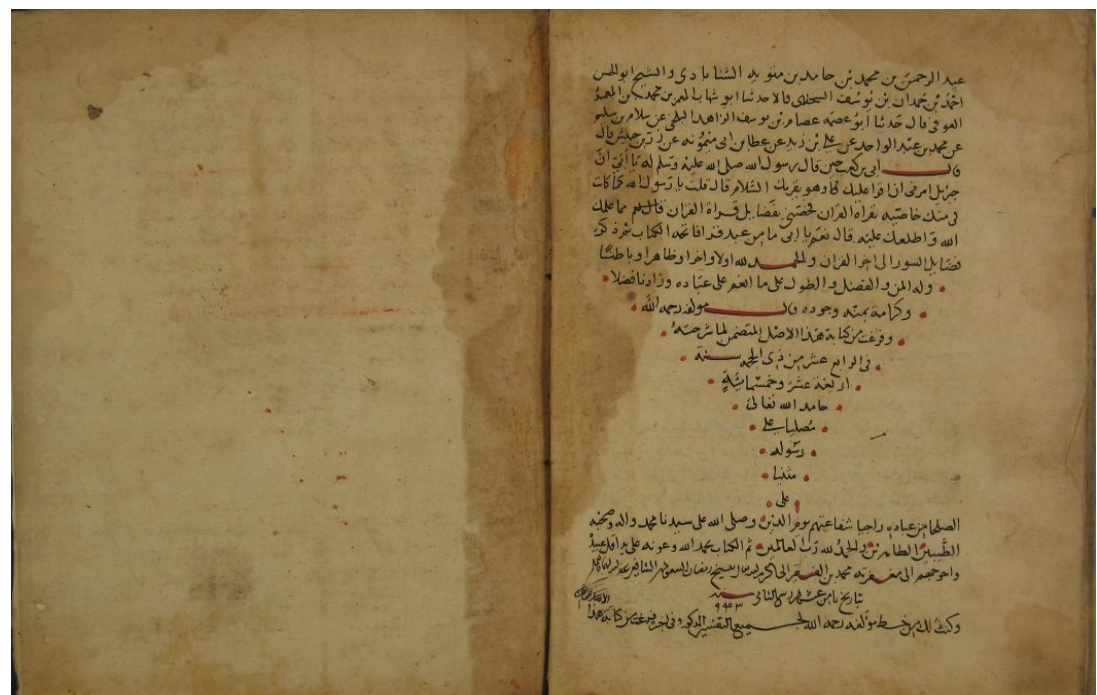 عبد الرحمن بن محمد بن حامد بن متويه الشناباذى والشيخ ابو الحسن
احمد بن حمدان بن يوسف السجزى قالا حدثنا ابو شهاب المعمر بن محمد بن المعمر
العوفى قال حدثنا ابو عصمه عصام بن يوسف الزاهد البلخى عن سلام بن سليم
عن محمد بن عبد الواحد عن على بن زيد عن عطا بن ابى ميمونه عن زر بن حبيش قال
قال ابى بن كعب حين قال رسول الله صلى الله عليه وسلم له يا أبىّ انّ
جبريل امرنى ان اقرا عليك وهو يقريك السّلام قال قلت يا رسول الله كما كانت
لى منك خاصّيه بقراة القرآن فخصّنى بفضايل قراة القران مما علمك
الله واطلعك عليه قال نعم يا ابى ما من عبد قرا فاتحة الكتاب ثم ذكر
فضايل السور الى اخر القران والحمد لله اولا واخرا وظاهرا وباطنًا
وله المن والفضل والطول على ما انعم على عباده وزادنا فضلا
وكرامة بمنّه وجوده قال مولفه رحمه الله
وفرغت من كتابة هذا الاصل المتضمن لما شرحته
فى الرابع عشر من ذى الحجه سنة
اربعة عشر وخمسمائة
حامد الله تعالى
مصليا على
رسوله
مثنيا
على
الصلحا من عباده راجيا شفاعتهم يوم الدين وصلى الله على سيدنا محمد واله وصحبه
الطّيبين الطاهرين والحمد لله ربّ العالمين تم الكتاب بحمد الله وعونه على يد اقل عبيده
واحوجهم الى مغفرته محمد بن الشافعى
تاريخ ثامن عشر ربيع الثانى سنة
٩٩٣
وكتبت ذلك من خط مؤلفه رحمه الله لجميع التفسير المذكور وفى اخره فرغت من كتابة هذا